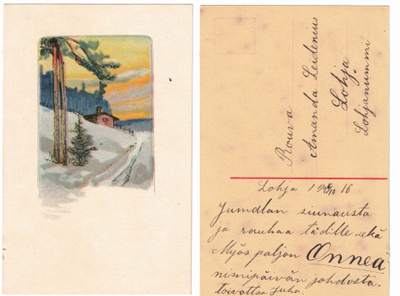 Rouva
Amanda Leidenius
Lohja
Lohjanummi
Lohja 16
Jumalan siunausta
ja rauhaa tädille sekä
Myös paljon Onnea
nimipäivän johdosta.
toivottaa Juho